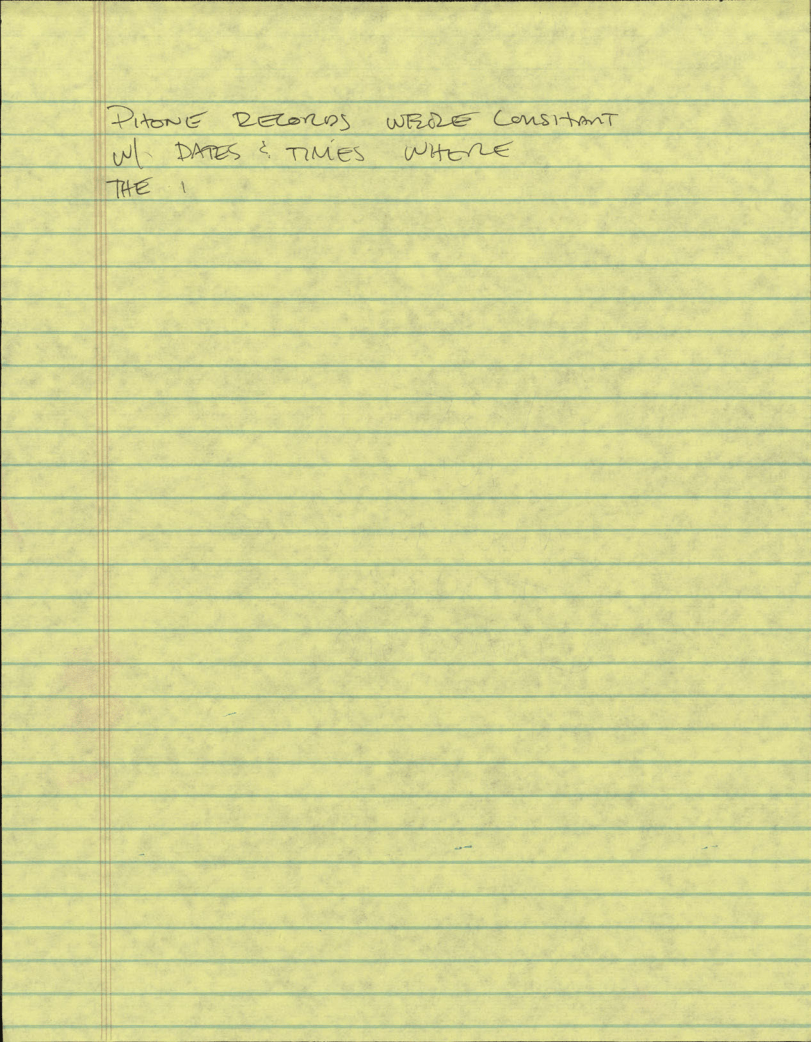 PHONE RECORDS WERE CONSITANT
W/ DATES & TIMES WHERE
THE I